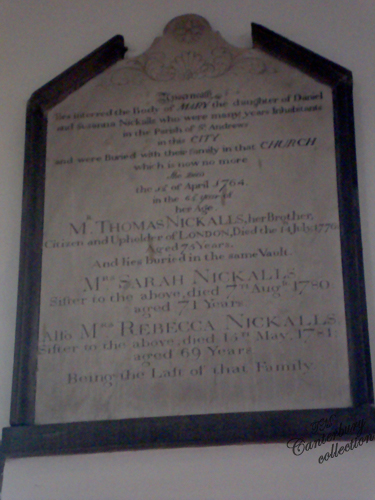 lies interred the Body of MARY the daughter of Daniel
and Susanna Nickalls who were many years Inhabitants
in the Parish of St. Andrews
in this CITY
and were Buried with their Family in that CHURCH
which is now no more
She died
the of April 1764.
in the year of
her Age
Mr. THOMAS NICKALLS, her Brother,
Citizen and Upholder of LONDON, Died the July, 1776
Aged 75 Years.
And lies Buried in the same Vault.
Mrs SARAH NICKALLS,
Sister to the above, died 7th Augst 1780.
aged 71 Years.
Alſo Mrs REBECCA NICKALLS.
Siſter to the above, died 15th May, 1781.
aged 69 Years
Being the Laſt of that Family.
The
Canterbury
collection